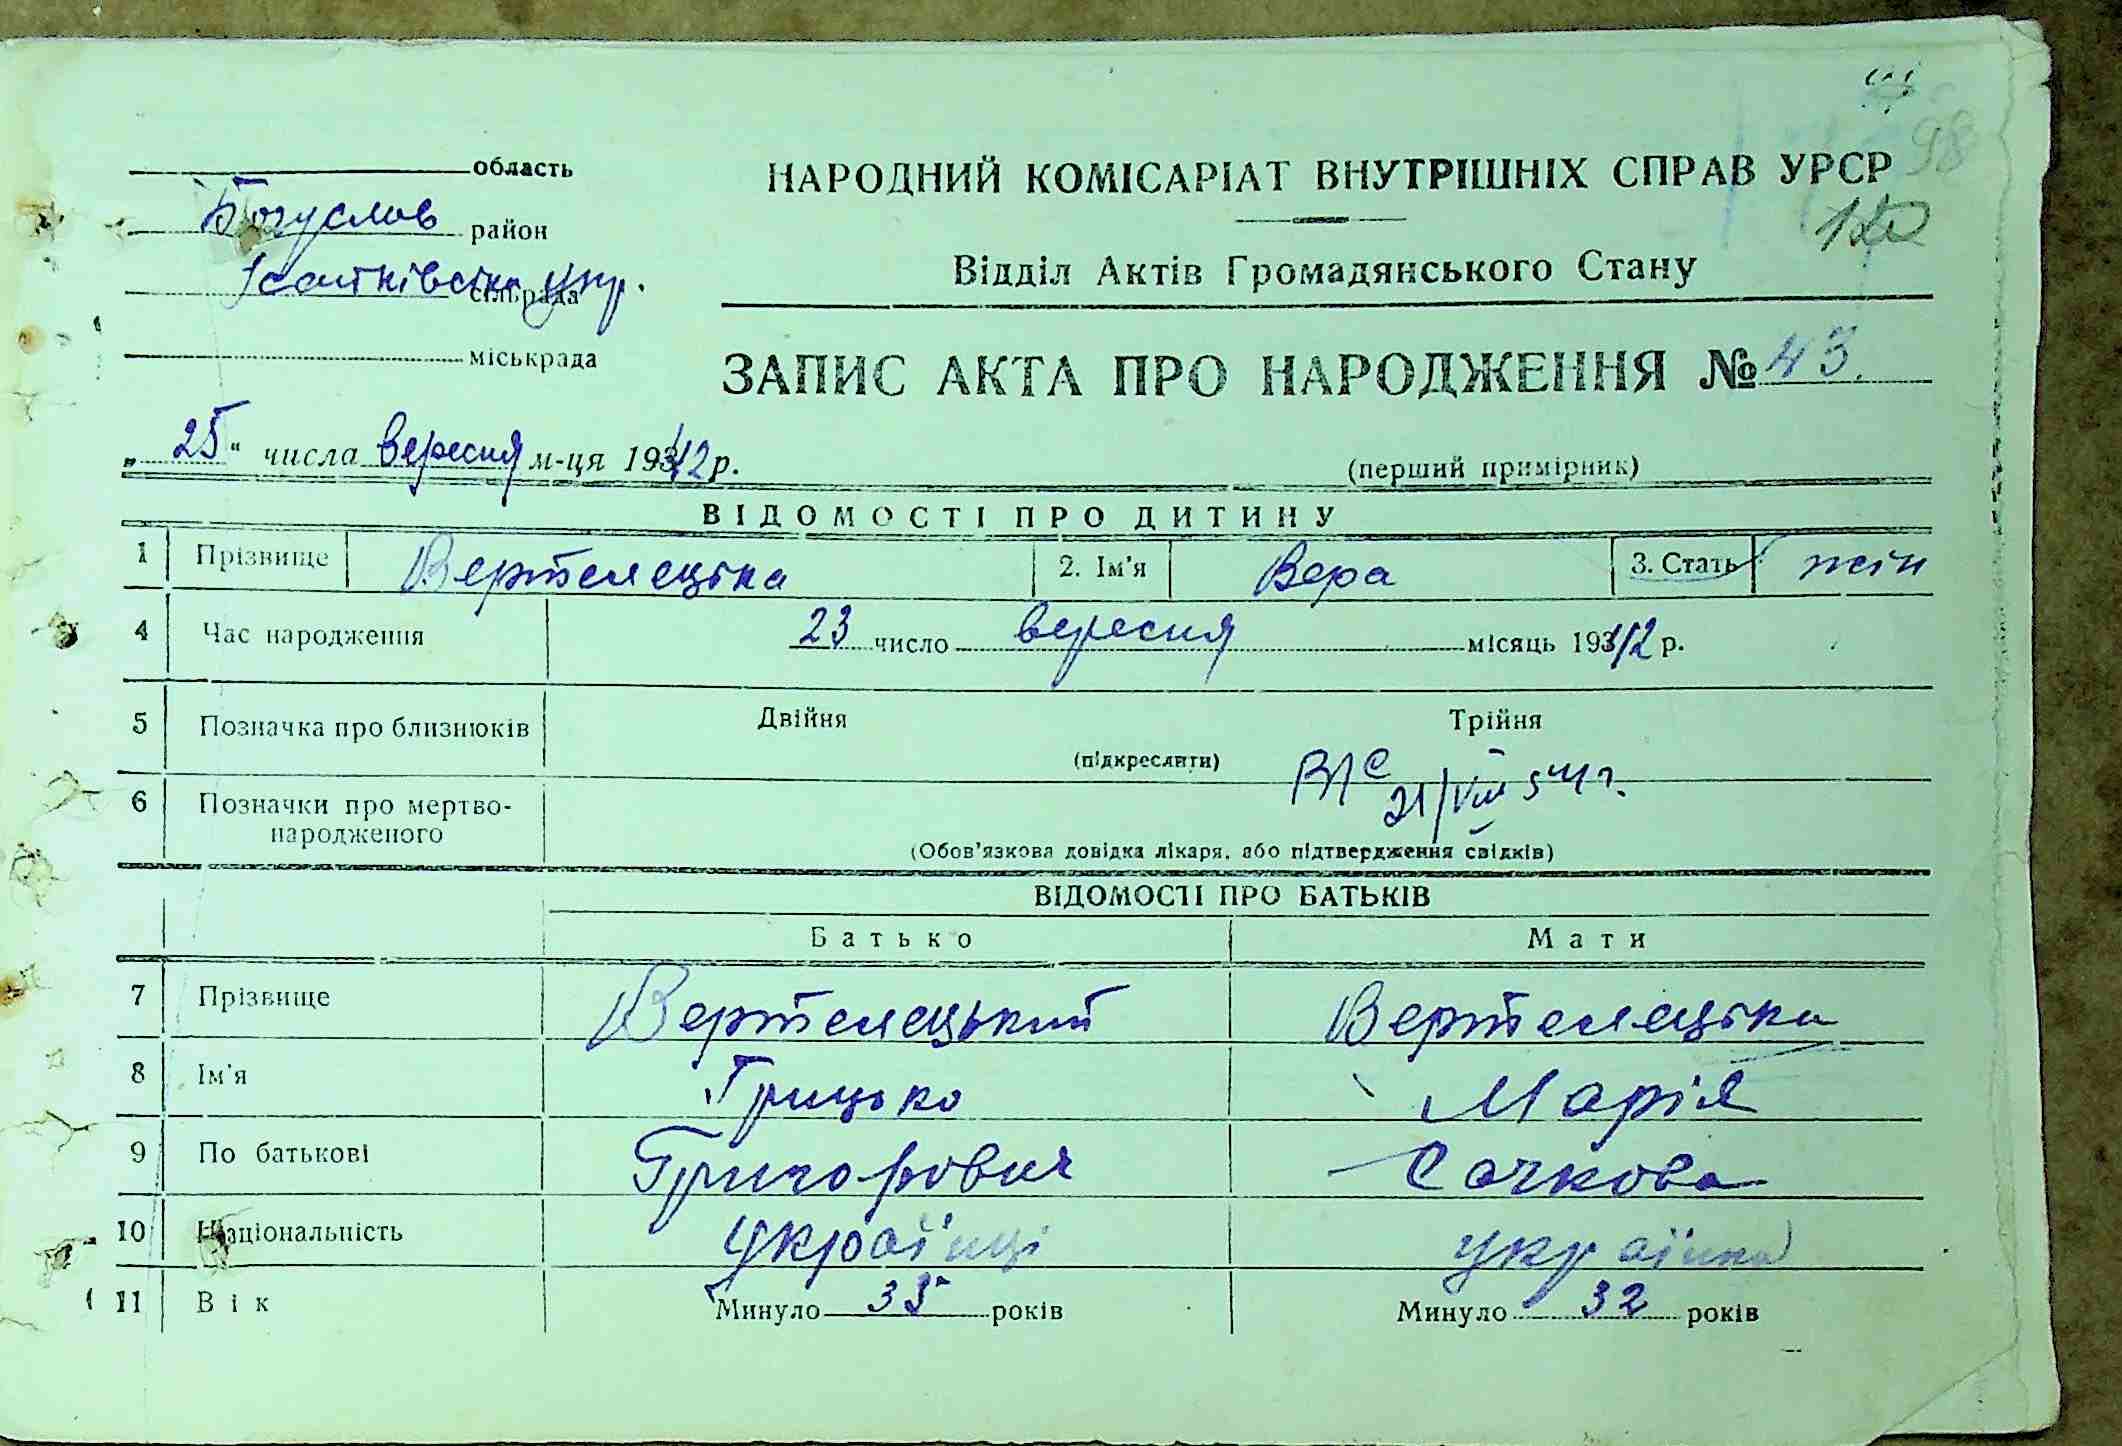 98
область
Богуслов район
Ісайківська упр. сільрада
міськрада
НАРОДНИЙ КОМІСАРІАТ ВНУТРІШНІХ СПРАВ УРСР
Відділ Актів Громадянського Стану
ЗАПИС АКТА ПРО НАРОДЖЕННЯ № 43.
„ 25 “ числа вересня м-ця 1942 р.
(перший примірник)
ВІДОМОСТІ ПРО ДИТИНУ
1 Прізвище Вертелецька 2. Ім'я Вера 3. Стать жін
4 Час народження 23 число вересня місяць 1942 р.
5 Позначка про близнюків Двійня Трійня
(підкреслити)
21/VIII 54 г.
6 Позначки про мертво-
народженого
(Обов'язкова довідка лікаря, або підтвердження свідків)
ВІДОМОСТІ ПРО БАТЬКІВ
Батько Мати
7 Прізвище Вертелецький Вертелецька
8 Ім'я Грицько Марія
9 По батькові Григорович Сачкова
10 Національність українці українка
11 Вік Минуло 35 років Минуло 32 років